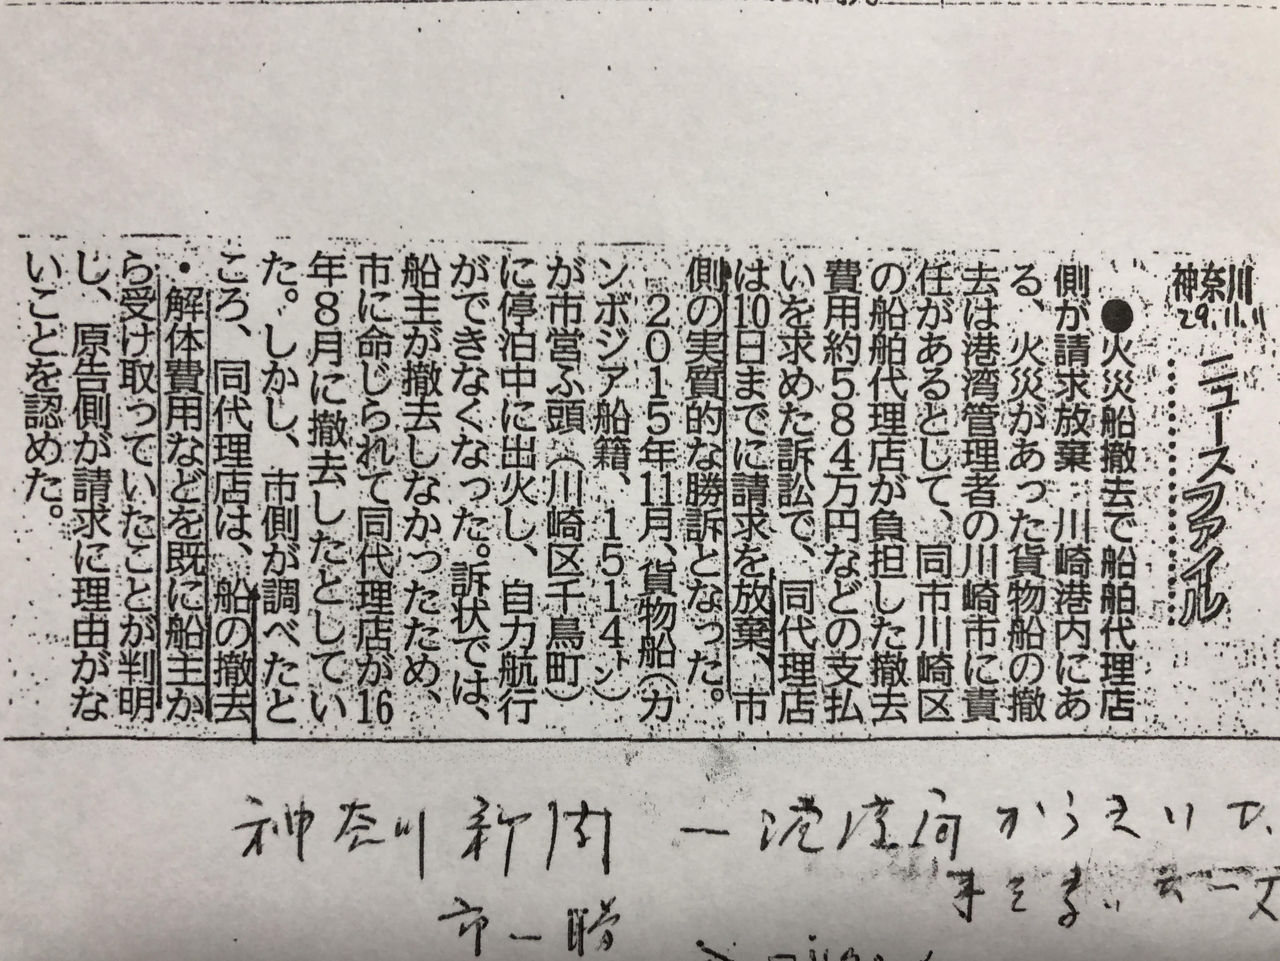 神奈川
29.11.11
ニュースファイル
●火災船撤去で船舶代理店
側が請求放棄 川崎港内にあ
る、火災があった貨物船の撤
去は港湾管理者の川崎市に責
任があるとして、同市川崎区
の船舶代理店が負担した撤去
費用約584万円などの支払
いを求めた訴訟で、同代理店
は10日までに請求を放棄、市
側の実質的な勝訴となった。
2015年11月、貨物船(カ
ンボジア船籍、1514㌧)
が市営ふ頭(川崎区千鳥町)
に停泊中に出火し、自力航行
ができなくなった。訴状では、
船主が撤去しなかったため、
市に命じられて同代理店が16
年8月に撤去したとしてい
た。しかし、市側が調べたと
ころ、同代理店は、船の撤去
・解体費用などを既に船主か
ら受け取っていたことが判明
し、原告側が請求に理由がな
いことを認めた。
神奈川新聞 ー港湾局からきいて、
市ー勝